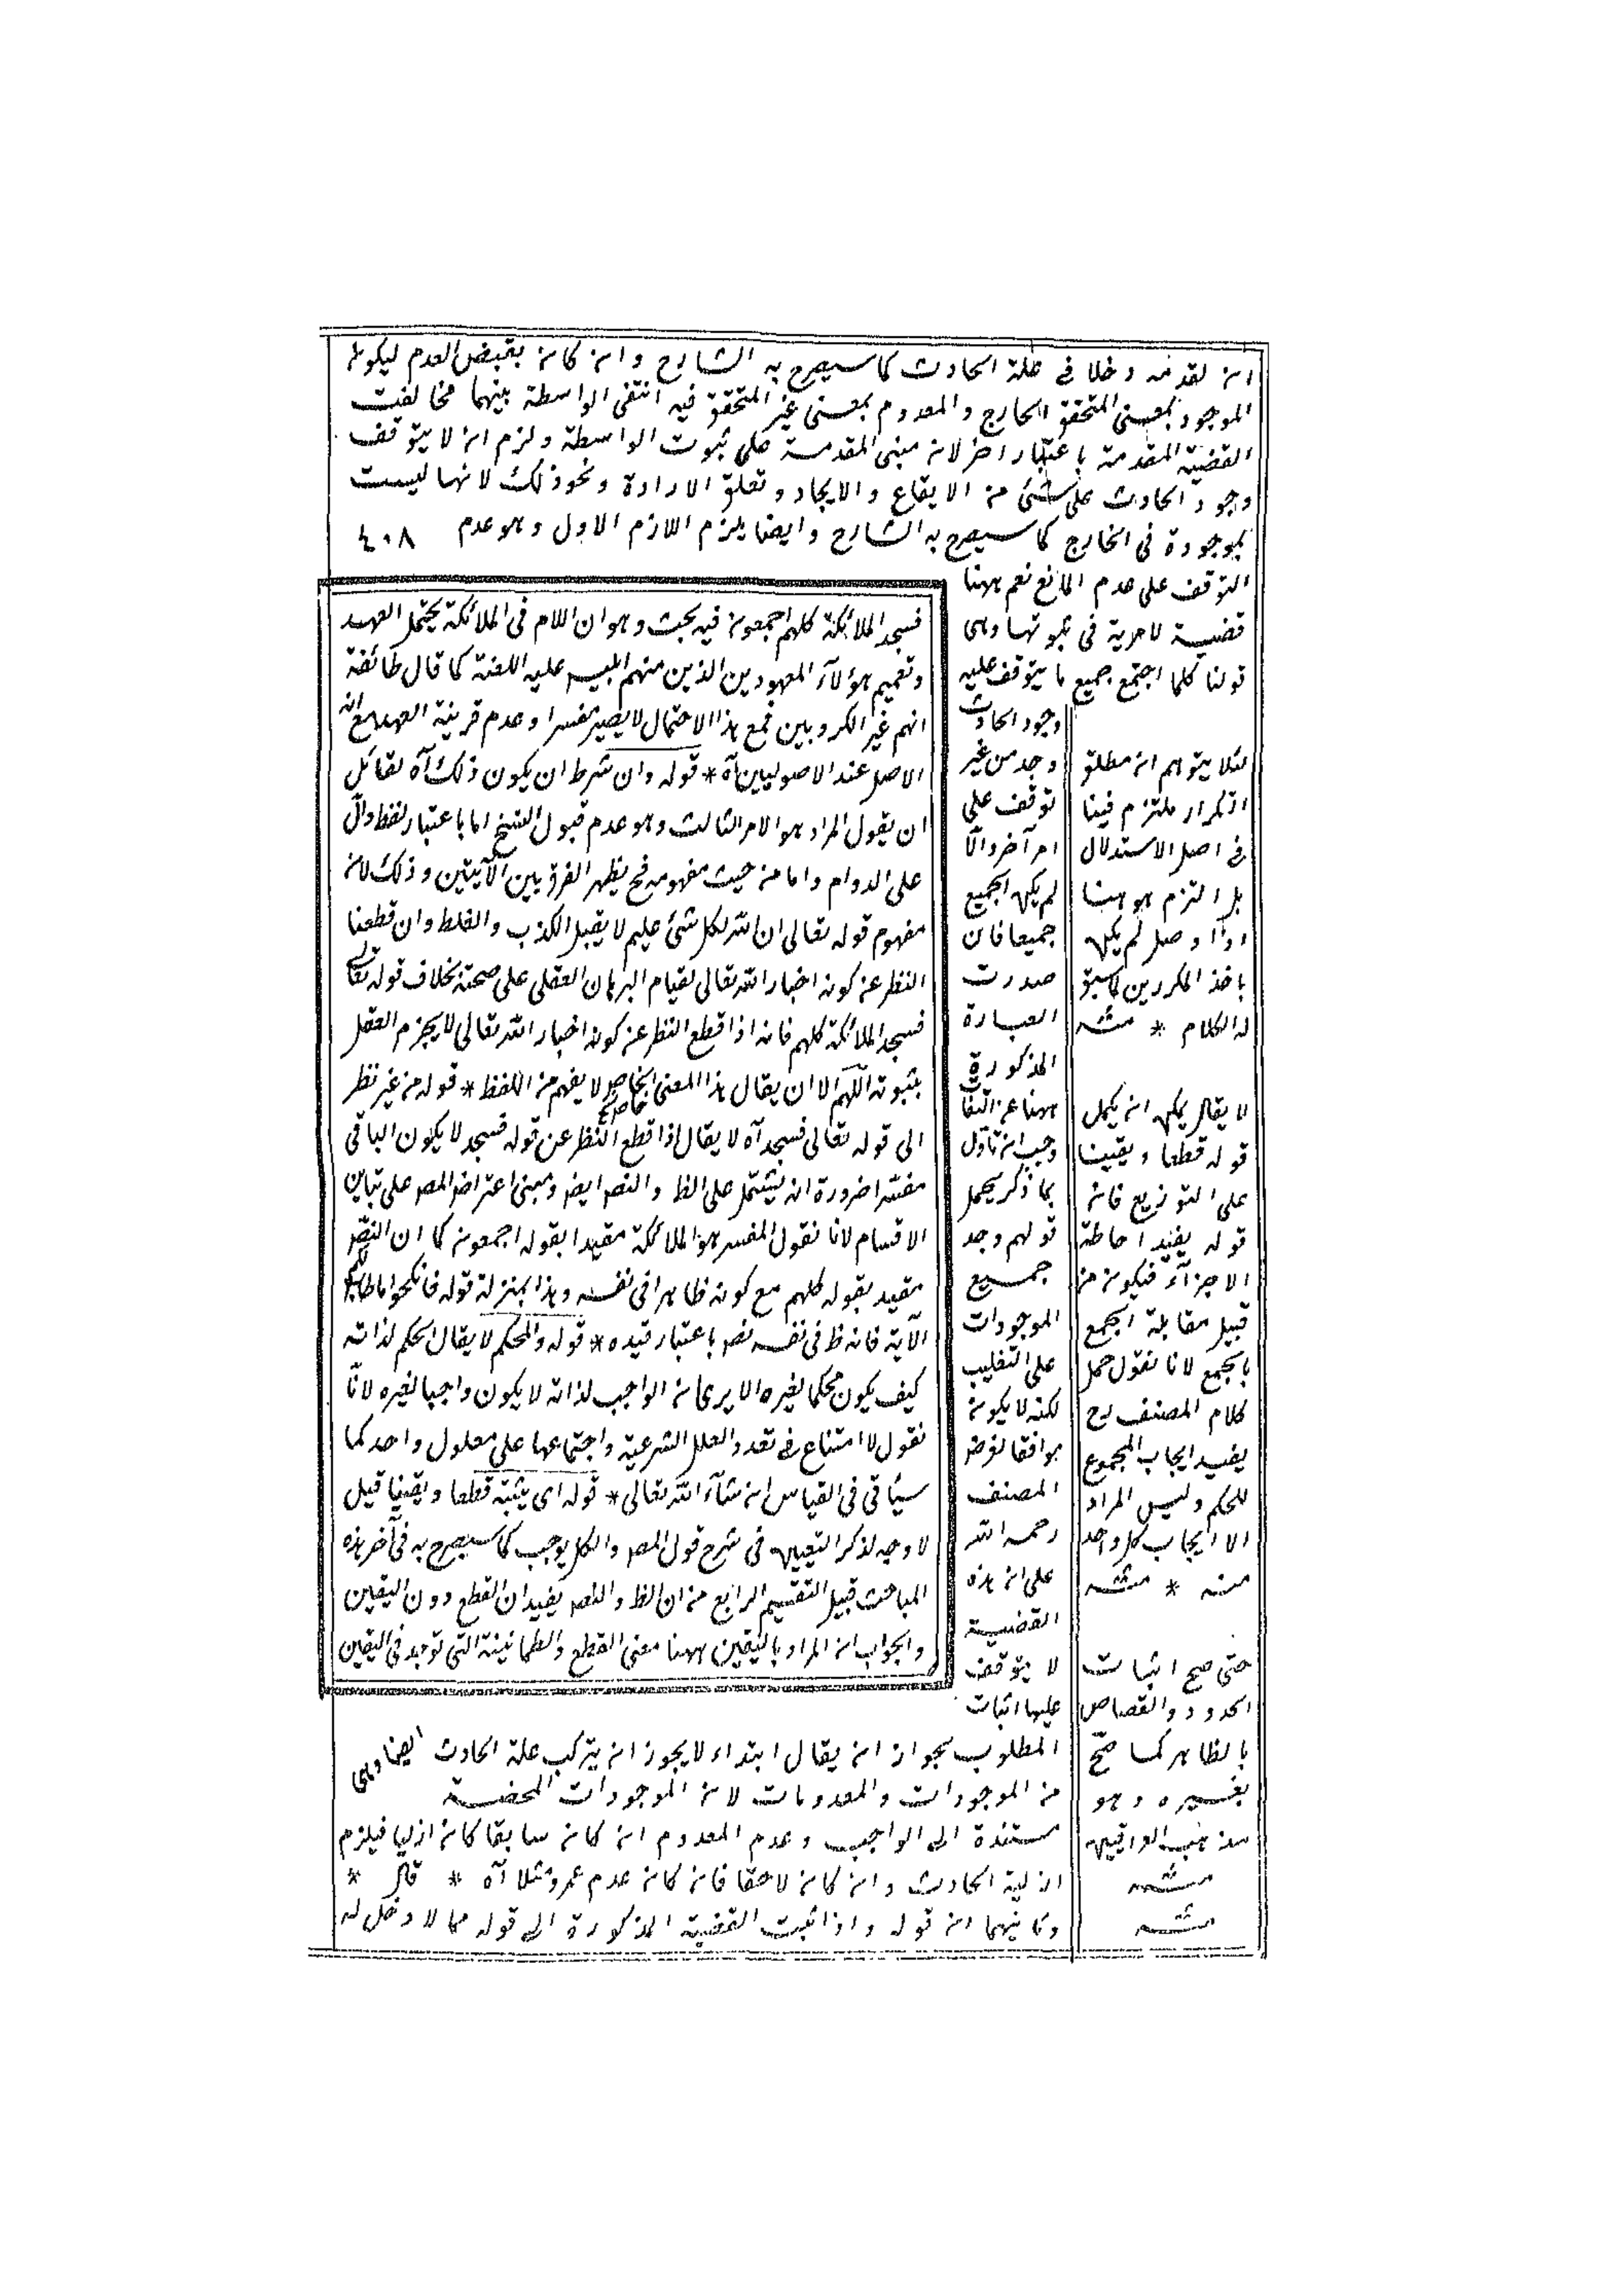 ان لقدمه دخلا في علة الحادث كما سيصرح به الشارح وان كان نقيض العدم ليكون
الموجود بمعنى المتحقق الخارج والمعدوم بمعنى غير المتحقق فيه انتفى الواسطة بينهما مخالفت
القضية المقدمة باعتبار اخر لان مبنى المقدمة على ثبوت الواسطة ولزم ان لا يتوقف
وجود الحادث على شئ من الايقاع والايجاد وتعلق الارادة ونحو ذلك لانها ليست
بموجودة في الخارج كما سيصرح به الشارح وايضا يلزم اللازم الاول وهو عدم ٤٠٨
التوقف على عدم المانع نعم ههنا
قضية لا مرية في ثبوتها وهى
قولنا كلما اجتمع جميع ما يتوقف عليه
وجود الحادث
وجد من غير
توقف على
امر آخر والا
لم يكن الجميع
جميعا فان
صدرت
العبارة
المذكورة
ههنا عن الثقات
وجب ان تأول
بما ذكر يحمل
قولهم وجد
جميع
الموجودات
على التغليب
لكنه لا يكون
موافقا لغرض
المصنف
رحمه الله
على ان هذه
القضية
لا يتوقف
عليها اثبات
المطلوب لجواز ان يقال ابتداء لا يجوز ان يتركب علة الحادث ايضا وهى
من الموجودات والمعدومات لان الموجودات المحضة
مستندة الى الواجب وعدم المعدوم ان كان سابقا كان ازليا فيلزم
ازلية الحادث وان كان لاحقا فان كان عدم عمرو مثلا آه * قال *
وثانيهما ان قوله واذا ثبت القضية المذكورة الى قوله مما لا دخل له
فسجد الملائكة كلهم اجمعون فيه بحث وهو ان اللام فى الملائكة يحتمل العهد
وتعميم هؤلآء المعهودين الذين منهم ابليس عليه اللعنة كما قال طائفة
انهم غير الكروبين فمع هذا الاحتمال لا يصير مفسرا وعدم قرينة العهد مع انه
الاصل عند الاصوليين آه * قوله وان شرط ان يكون ذلك آه لقائل
ان يقول المراد هو الامر الثالث وهو عدم قبول النسخ اما باعتبار لفظ دال
على الدوام واما من حيث مفهومه فح يظهر الفرق بين الآيتين وذلك لان
مفهوم قوله تعالى ان الله لكل شئ عليم لا يقبل الكذب والغلط وان قطعنا
النظر عن كونه اخبار الله تعالى لقيام البرهان العقلى على صحته بخلاف قوله تعالى
فسجد الملائكة كلهم فانه اذا قطع النظر عن كونه اخبار الله تعالى لا يجزم العقل
بثبوته اللهم الا ان يقال هذا المعنى الخاص لا يفهم من اللفظ * قوله من غير نظر
الى قوله تعالى فسجد آه لا يقال اذا قطع النظر عن قوله فسجد لا يكون الباقى
مفسرا ضرورة ان يشتمل على الظ والنص ايض ومبنى اعتراض المصـ على تباين
الاقسام لانا نقول المفسر هو الملائكة مقيدا بقوله اجمعون كما ان النص
مقيد بقوله كلهم مع كونه ظاهرا فى نفسه وهذا بمنزلة قوله فانكحوا ما طاب لكم
الآية فانه ظ فى نفسه نص باعتبار قيده * قوله والمحكم لا يقال المحكم لذاته
كيف يكون محكما لغيره الا يرى ان الواجب لذاته لا يكون واجبا لغيره لانا
نقول لا امتناع فى تعدد العلل الشرعية واجتماعها على معلول واحد كما
سيأتى فى القياس ان شآء الله تعالى * قوله اى يثبته قطعا ويقينا قيل
لا وجه لذكر اليقين فى شرح قول المصـ والكل يوجب كما سيصرح به فى آخر هذه
المباحث قبيل التقسيم الرابع من ان الظ والنص يفيدان القطع دون اليقين
والجواب ان المراد باليقين ههنا معنى القطع والطمانينة التى توجد فى اليقين
لئلا يتوهم ان مطلق
التكرار ملتزم فينا
في اصل الاستدلال
بل التزم هو هنا
اذا وصل لم يكن
باخذ المكررين كما سبق
له الكلام * منه
لا يقال يمكن ان يحمل
قوله قطعا ويقينا
على التوزيع فان
قوله يفيد احاطة
الاجزآء فيكون من
قبيل مقابلة الجمع
بالجمع لانا نقول حمل
كلام المصنف رح
يفيد ايجاب المجموع
للحكم وليس المراد
الا ايجاب كل واحد
منه * منه
حتى صح اثبات
الحدود والقصاص
بالظاهر كما صح
بغيره وهو
مذهب العراقيين
منه
منه